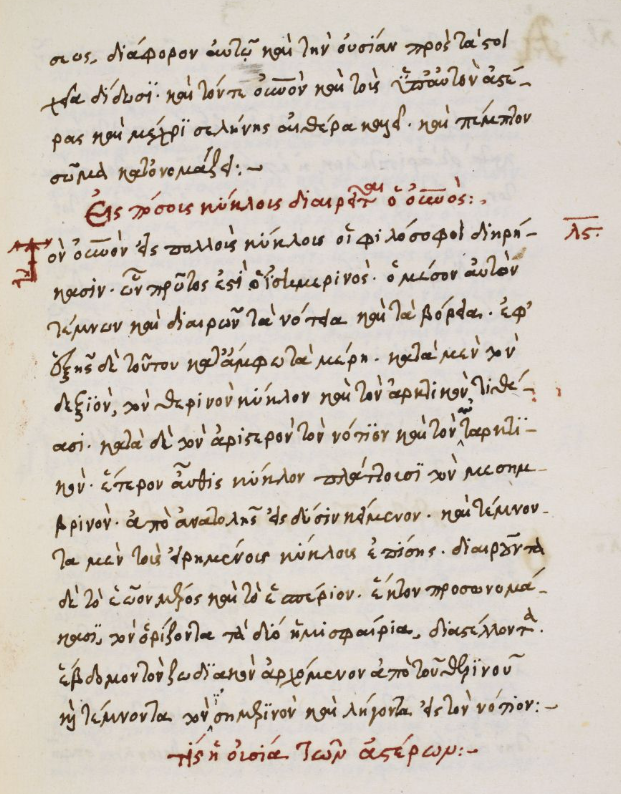 σεως, διάφορον αὐτῷ καὶ τὴν οὐσίαν πρὸς τὰ στοι
χεῖα δίδωσϊ· καὶ τόν τε οὐνὸν καὶ τοὺς ὑπ' αὐτὸν ἀστέ-
ρας καὶ μέχρϊ σελήνης αἰθέρα καλεῖ· καὶ πέμπτον
σῶμα κατονομάζει:-
Εἰς πόσους κύκλους διαιρεῖται ὁ οὐνός:-
λς.
Τὸν οὐνὸν εἰς πολλοὺς κύκλους οἱ φιλόσοφοι διηρή-
κασιν· ὧν πρῶτος ἐστὶ ὁ ἰσημερινός· ὁ μέσον αὐτὸν
τέμνων καὶ διαιρῶν τὰ νότεια καὶ τὰ βόρεια. ἐφ'
ἑξῆς δὲ τοῦτον κατ' ἄμφω τὰ μέρη. κατὰ μὲν τὸν
δεξϊόν, τὸν θερινὸν κύκλον καὶ τὸν ἀρκτικὸν τιθέ-
ασι. κατὰ δὲ τὸν ἀριστερὸν τὸν νότϊον καὶ τὸν ἀνταρκτϊ-
κόν. ἕτερον αὖθις κύκλον πλάττουσϊ τὸν μεσημ-
βρινόν. ἀπὸ ἀνατολῆς εἰς δύσιν κείμενον. καὶ τέμνον-
τα μὲν τοὺς εἰρημένους κύκλους ἐπίσης. διαιροῦντα
δὲ τὸ ἑῶον μέρος καὶ τὸ ἑσπέριον. ἕκτον προσονομά-
κασϊ, τὸν ὁρίζοντα τὰ δύο ἡμισφαίρια, διαστέλλοντα.
ἕβδομον τὸν ζωδϊακὸν ἀρχόμενον ἀπὸ τοῦ θερϊνοῦ
κὴ τέμνοντα τὸν ἰσημερϊνὸν καὶ λήγοντα εἰς τὸν νότιον:-
τίς ἡ οὐσία τῶν ἀστέρων:-